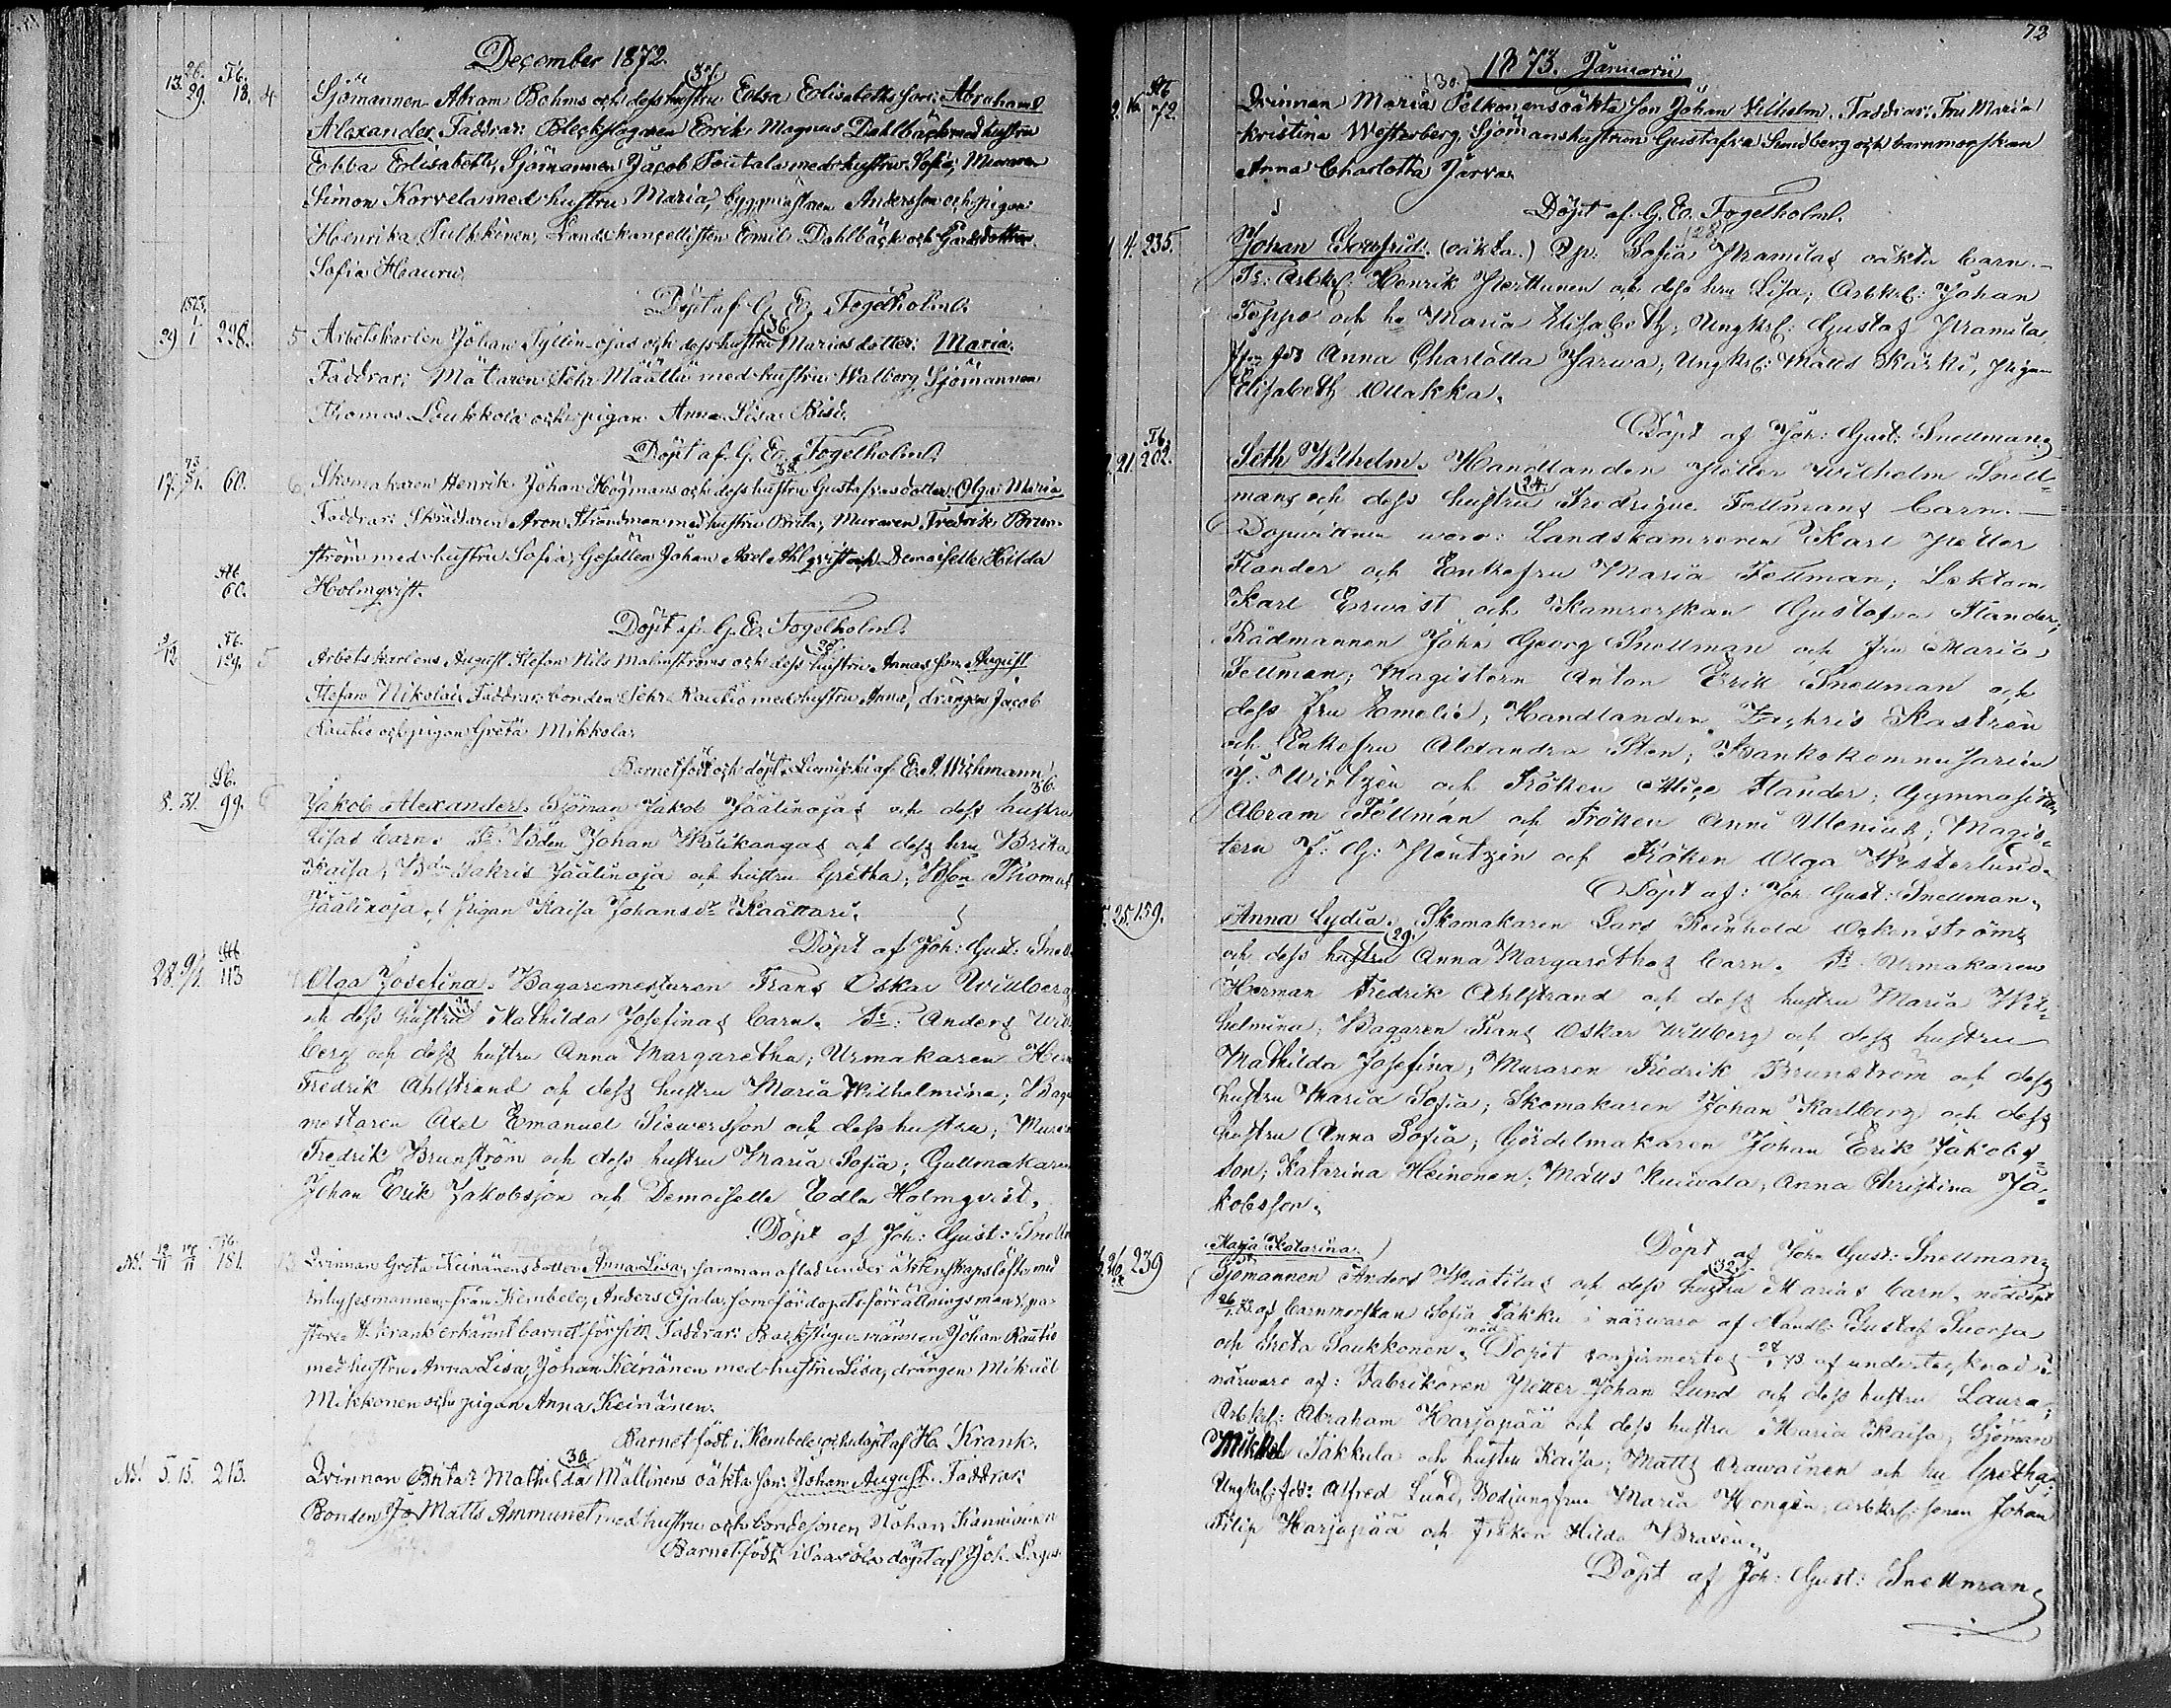 December 1872.
26. Fb.
13. 29. 18. 4 Sjömannen Abram Bohms och dess hustru Edsa Elisabeths son: Abraham
Alexander. Faddrar: Bleckslagaren Erik Magnus Dahlbäck med hustru
Ebba Elisabeth, Sjömannen Jacob med hustru Sofia, Muraren
Simon Karvela med hustru Maria, byggmästaren Andersson och pigan
Henrika Pulkkinen, Landskancellisten Emil Dahlbäck och Gårdsdotter
Sofia Hauru.
Döpt af G. E. Fogelholm.
1873. (36.)
29 1/1 228. 5 Arbetskarlen Johan och dess hustru Marias dotter: Maria.
Faddrar: Mätaren Pehr Määttä med hustru Walborg Sjömannen
Thomas Leukkola och pigan Anna Lisa Bisi.
Döpt af G. E. Fogelholm.
73 38.
17. 5/1. 60. 6. Skomakaren Henrik Johan Högmans och dess hustru Gustafvas dotter: Olga Maria
Faddrar: Skräddaren Aron Strandman med hustru Brita, Muraren Fredrik Brun-
ström med hustru Sofia, Gesällen Johan Axel Ahlqvist och Demoiselle Hilda
60. Holmqvist.
Döpt af G. E. Fogelholm.
9/12 129. 5 Arbetskarlens August Stefan Nils Malmströms och dess hustru Annas son August
Stefan Nikolai. Faddrar: bonden Pehr Rautio med hustru Anna, drängen Jacob
Rautio och pigan Greta Mikkola.
Barnet födt och döpt i Liminka af E. A. Wichmann
36.
8. 31. 99. 6 Jakob Alexander. Sjöman Jakob Jäälinojas och dess hustru
Lisas barn. Fr: Bden Johan Wälikangas och dess hru Brita
Kaisa, Bdn Sakris Jäälinoja och hustru Gretha; Bson Thomas
Jäälinoja, pigan Kaisa Johansdr Kaättari.
Döpt af Joh: Gust: Snell
28. 9/1 113 Olga Josefina. Bagaremestaren Frans Oskar Willbergs
och dess hustru Mathilda Josefinas barn. Fr: Anders Will
berg och dess hustru Anna Margaretha; Urmakaren Her
Fredrik Ahlstrand och dess hustru Maria Wilhelmina; Bage
mestaren Axel Emanuel Siewersson och dess hustru; Murar
Fredrik Brunström och dess hustru Maria Sofia; Gullmakaren
Johan Erik Jakobsson och Demoiselle Edla Holmqvist.
Döpt af Joh: Gust: Snell
Ns! 12/11 17/11 181. 13 Qvinnan Greta Keinänens dotter Anna Lisa, samman aflad under äktenskapslöfte med
inhysesmannen från Kembele, Anders Ojala, som för dopets förrättningsman, pa-
stor H. Krank erkänt barnet för sitt. Faddrar: Backstugumannen Johan Rautio
med hustru Anna Lisa, Johan Keinänen med hustru Lisa, drängen Mikael
Mikkonen och pigan Anna Keinänen.
Barnet födt i Kembele och döpt af H. Krank.
(30)
Ns! 5. 15. 213. Qvinnan Brita Mathilda Mällinens oäkta son: Johan August. Faddrar:
Bonden Matts Ammunet med hustru och bondesonen Johan
Barnet födt i döpt af Joh. Lagus.
73
1873. Januari
(30.)
Qvinnan Maria Pelkonens oäkta son Johan Wilhelm. Faddrar: Fru Maria
Kristina Westerberg, Sjömanshustrun Gustafva Sundberg och barnmorskan
Anna Charlotta Järva.
Döpt af G. E. Fogelholm.
(28)
1 4. 235. Johan Gottfrid. (oäkta.) Qp: Sofia Kramilas oäkta barn.
Fr: Arbkrl: Henrik Perttunen och dess hru Lisa; Arbkrl: Johan
Toppo och hu Maria Elisabeth; Ungkrl: Gustaf Kramila,
Anna Charlotta Jarwa; Ungkrl: Matts Kärki, Pigan
Elisabeth Ollakka.
Döpt af Joh: Gust: Snellman
Fb.
21. 202. Seth Wilhelm. Handlanden Petter Wilhelm Snell-
mans och dess hustru (24.) Fredrique Fellmans barn.
Dopvittnen woro: Landskamreren Karl Petter
Flander och Enkefru Maria Fellman; Lektorn
Karl Erwast och Kamrerskan Gustafva Flander;
Rådmannen John Georg Snellman och fru Maria
Fellman; Magistern Anton Erik Snellman och
dess fru Emelie; Handlanden Zachris Kastrén
och Enkefru Alexandra Sten; Bankokommissarien
J. Wirtzén och Fröken Alice Flander; Gymnasisten
Abram Fellman och Fröken Anni Uleniuk; Magis-
tern J: G: Neutzin och Fröken Olga Westerlund.
Döpt af: Joh Gust: Snellman.
25. 159. Anna Lydia. Skomakaren Lars Reinhold Ockenströms
och dess hustru (29) Anna Margarethas barn. Fr. Urmakaren
Herman Fredrik Ahlstrand och dess hustru Maria Wil-
helmina; Bagaren Frans Oskar Willberg och dess hustru
Mathilda Josefina; Muraren Fredrik Brunström och dess
hustru Maria Sofia; Skomakaren Johan Karlberg och dess
hustru Anna Sofia; Gördelmakaren Johan Erik Jakobs-
son; Katarina Heinonen; Matts Ruiwala; Anna Christina Ja-
kobsson.
Döpt af Joh Gust: Snellman
Kaija Katarina.
26. 239 Sjömannen Anders Wuotilas och dess hustru (32) Marias barn, nöddöpt
26/1 73. af barnmorskan Sofia Takku i närwaro af Handl: Gustaf Suorsa
och Greta Soukkonen. nöd Dopet konfirmertes 28/1 73. af undertecknad i
närwaro af: Fabrikören Petter Johan Lund och dess hustru Laura;
Arbkrl: Abraham Harjapää och dess hustru Maria Kaisa, Sjöman
Mikkel Takkula och hustru Kaisa; Matts Orawainen och hu Gretha;
Ungkrl: Alfred Lund, Bodjungfrun Maria Hongén, arbkrl: sonen Johan
Filip Harjapää och Fröken Hilda Braxén.
Döpt af Joh: Gust: Snellman